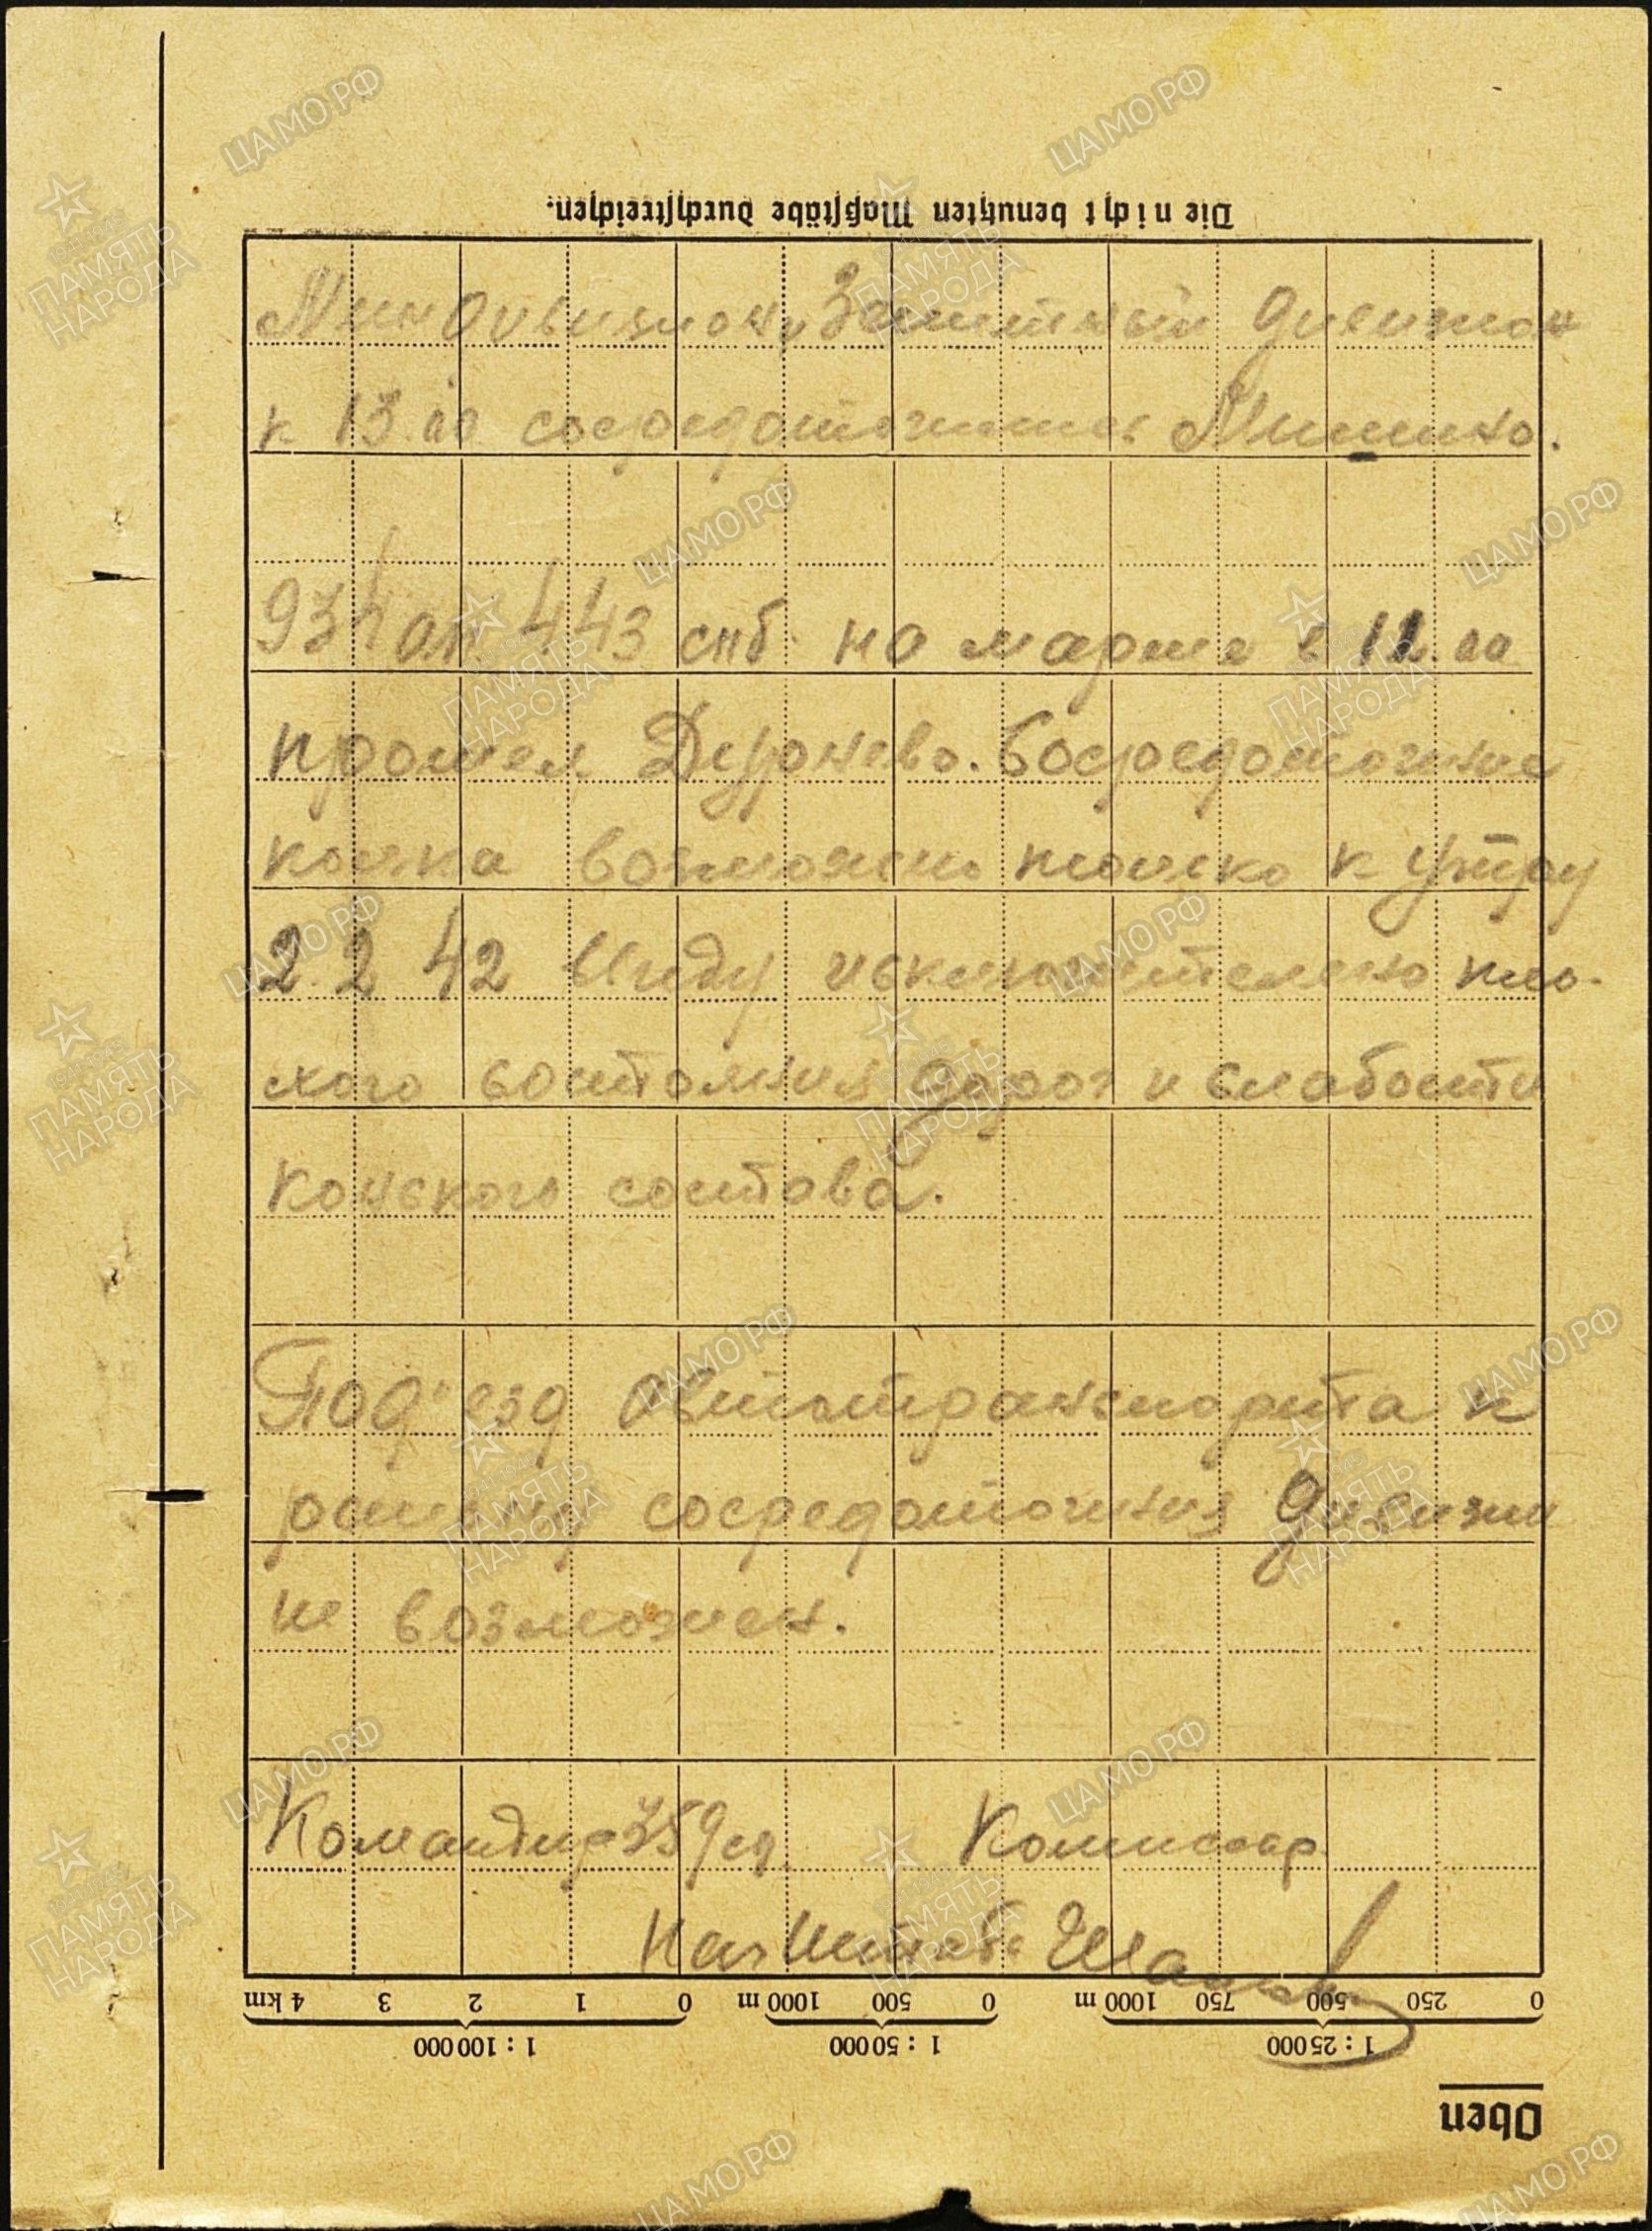 Die nicht benutzten Maßstäbe durchstreichen.
Миндивизион, Зенитный дивизион
к 13.00 сосредоточится Мишино.
934 ап 443 спб. на марше в 11.00
прошел Дурнево. Сосредоточение
полка возможно только к утру
2.2 42 Ввиду исключительно пло-
хого состояния дорог и слабости
конского состава.
Под'езд автотранспорта к
району сосредоточения дивизии
не возможен.
Командир 359 сд. Комиссар
Нач Штаба
4 km 3 2 1 0 1000 m 500 0 1000 m 750 500 250 0
1 : 100 000 1 : 50 000 1 : 25 000
Oben
ЦАМО.РФ
ПАМЯТЬ НАРОДА